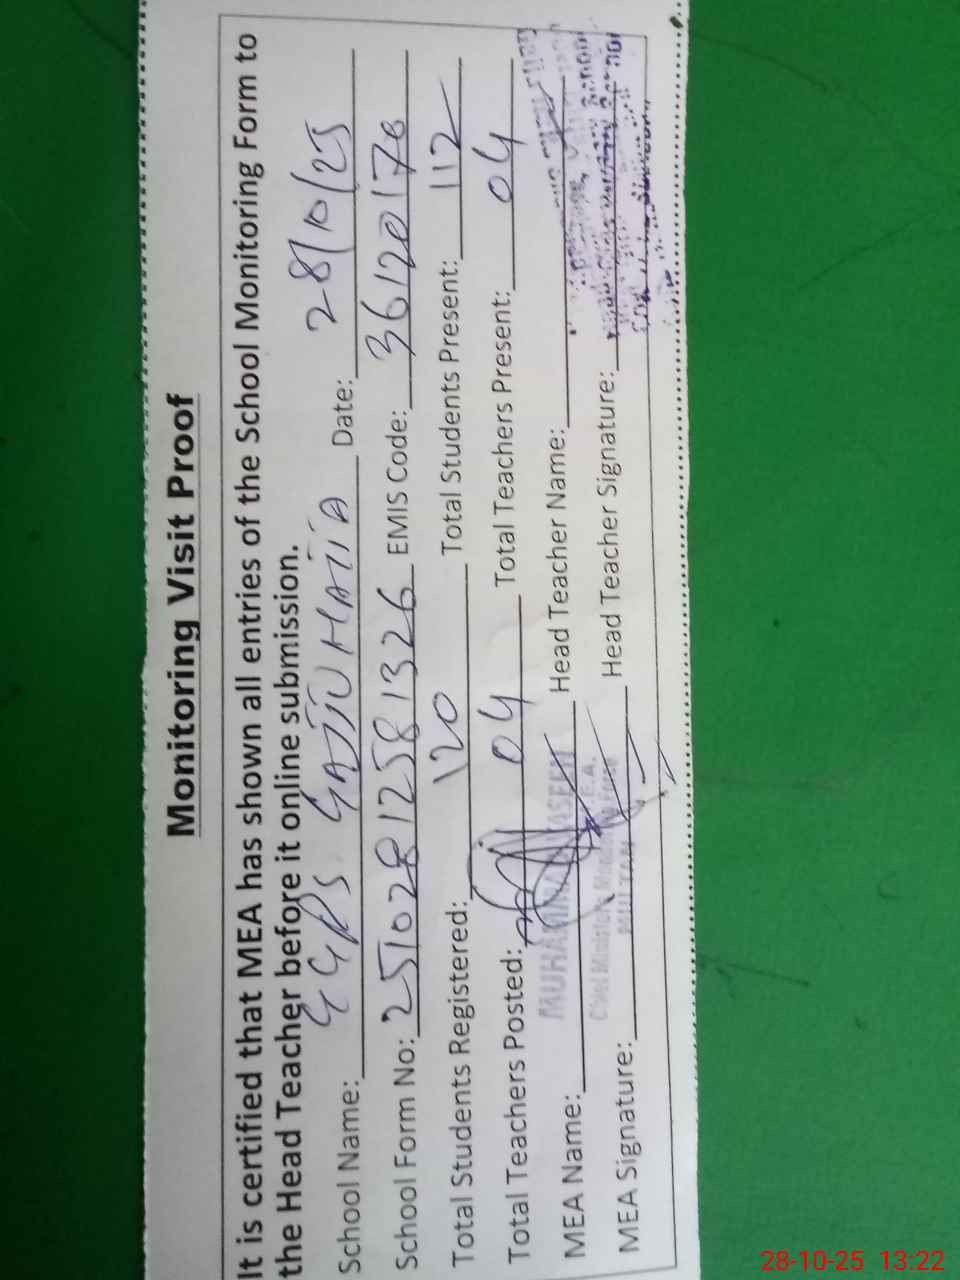 Monitoring Visit Proof
It is certified that MEA has shown all entries of the School Monitoring Form to
the Head Teacher before it online submission.
School Name: GGPS GAJJUHATTA Date: 28/10/25
School Form No: 25102812581326 EMIS Code: 36120170
Total Students Registered: 120 Total Students Present: 112
Total Teachers Posted: 04 Total Teachers Present: 04
MEA Name: MUHAMMAD Head Teacher Name:
MEA Signature: MULTAN Head Teacher Signature:
28-10-25 13:22